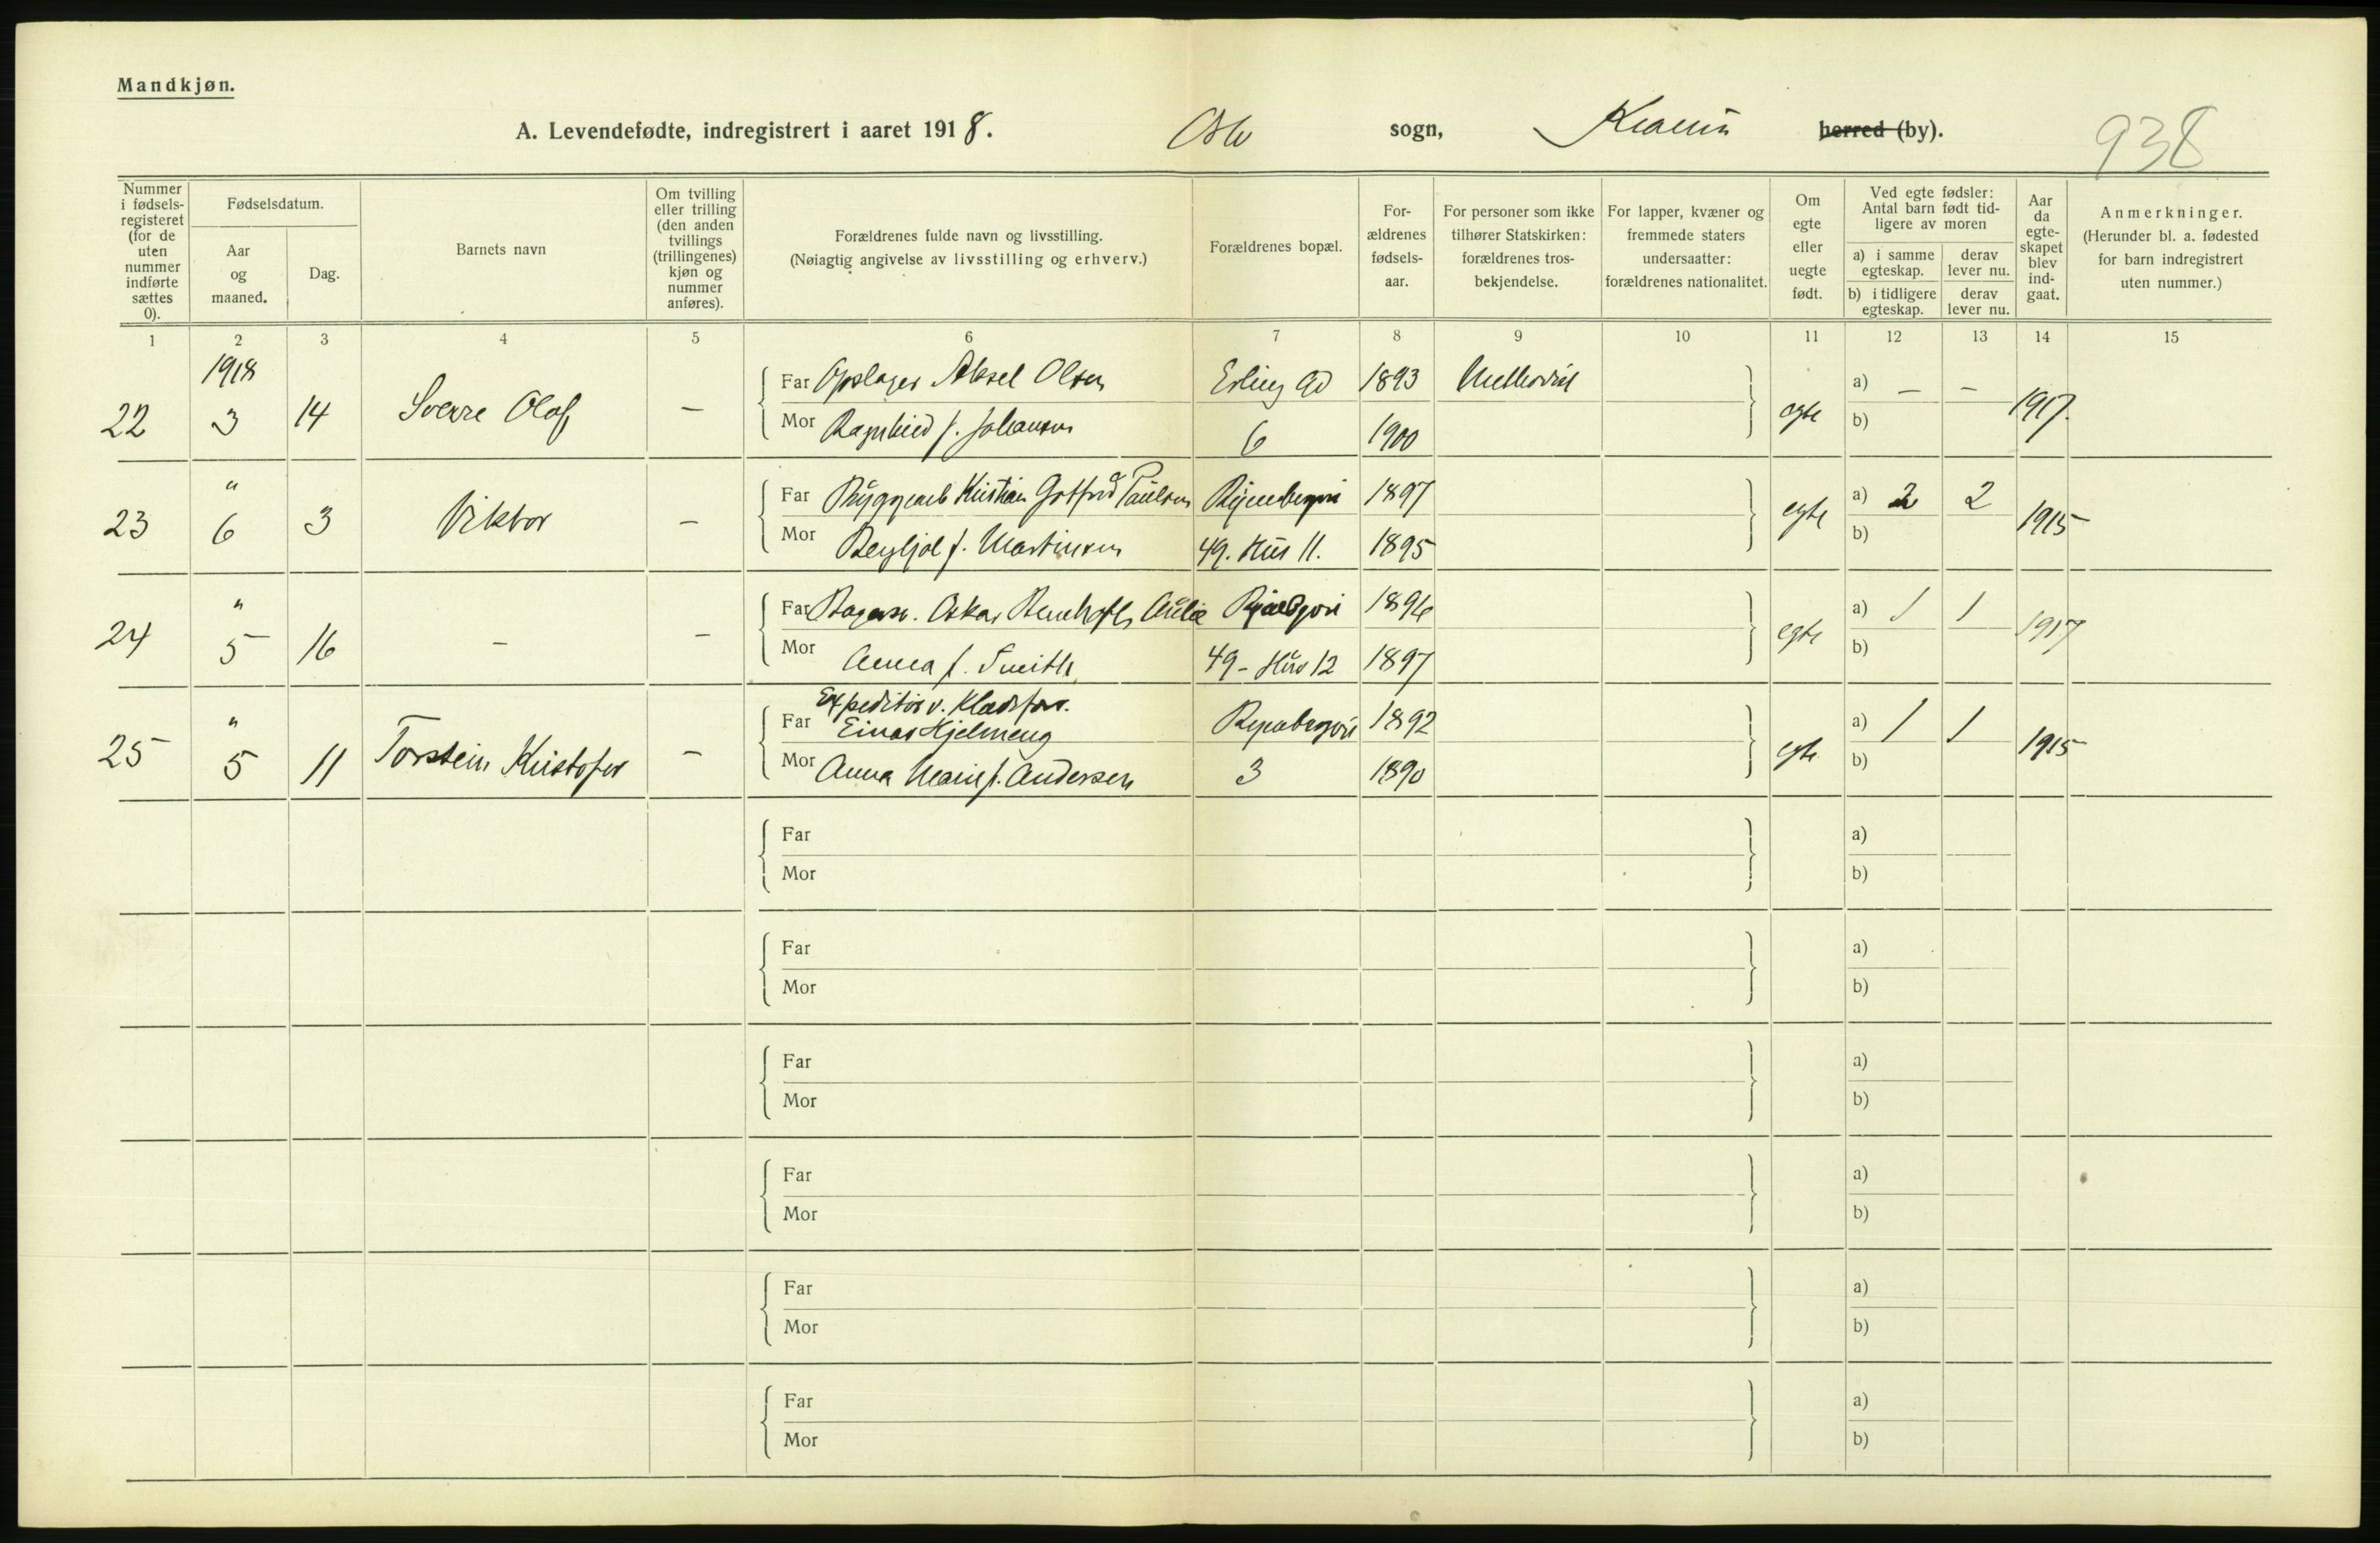 Mandkjøn.
A. Levendefødte, indregistrert i aaret 1918. Oslo sogn, herred (by). 938
Nummer i fødsels-registeret (for de uten nummer indførte sættes 0).
Fødselsdatum.
Aar og maaned.
Dag.
Barnets navn
Om tvilling eller trilling (den anden tvillings (trillingenes) kjøn og nummer anføres).
Forældrenes fulde navn og livsstilling.
(Nøiagtig angivelse av livsstilling og erhverv.)
Forældrenes bopæl.
For-ældrenes fødsels-aar.
For personer som ikke tilhører Statskirken: forældrenes tros-bekjendelse.
For lapper, kvæner og fremmede staters undersaatter: forældrenes nationalitet.
Om egte eller uegte født.
Ved egte fødsler: Antal barn født tid-ligere av moren
a) i samme egteskap.
derav lever nu.
b) i tidligere egteskap.
derav lever nu.
Aar da egte-skapet blev ind-gaat.
Anmerkninger.
(Herunder bl. a. fødested for barn indregistrert uten nummer.)
1 2 3 4 5 6 7 8 9 10 11 12 13 14 15
1918
22 3 14 Sverre Olaf — Far Opslager Aksel Olsen Erling Gd 1893 egte a) — — 1917.
Mor Ragnhild f. Johansen 6 1900 b)
23 " 6 3 Viktor — Far Kristian Gotfred Paulsen 1897 egte a) 2 2 1915
Mor Bergljot f. Martinsen 49. Hus 11. 1895 b)
24 " 5 16 — — Far Oskar 1896 egte a) 1 1 1917
Mor Anna f. Smith 49 - Hus 12 1897 b)
Expeditør v. Klædsforr.
25 " 5 11 Torstein Kristofer — Far Einar Hjelmeng 1892 egte a) 1 1 1915
Mor Anna Marie f. Andersen 3 1890 b)
Far a)
Mor b)
Far a)
Mor b)
Far a)
Mor b)
Far a)
Mor b)
Far a)
Mor b)
Far a)
Mor b)